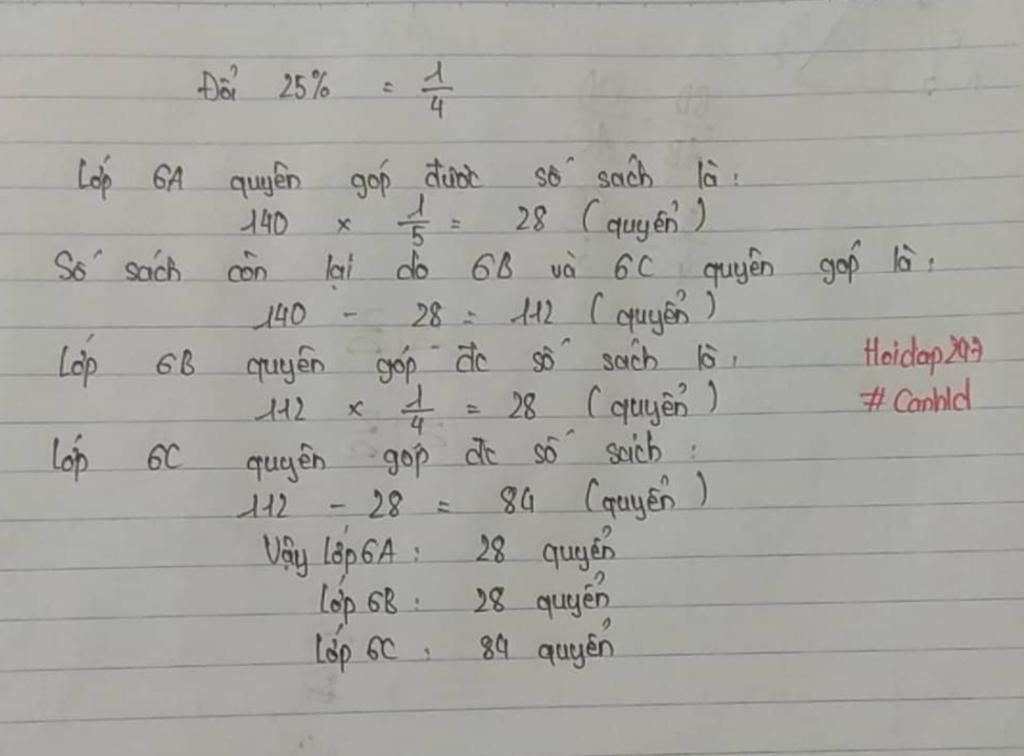 Đổi 25% = 1/4
Lớp 6A quyên góp được số sách là:
140 x 1/5 = 28 (quyển)
Số sách còn lại do 6B và 6C quyên góp là:
140 - 28 = 112 (quyển)
Lớp 6B quyên góp đc số sách là:
112 x 1/4 = 28 (quyển)
Lớp 6C quyên góp đc số sách:
112 - 28 = 84 (quyển)
Vậy lớp 6A: 28 quyển
lớp 6B: 28 quyển
lớp 6C: 84 quyển
Hoidap247
# Canhld